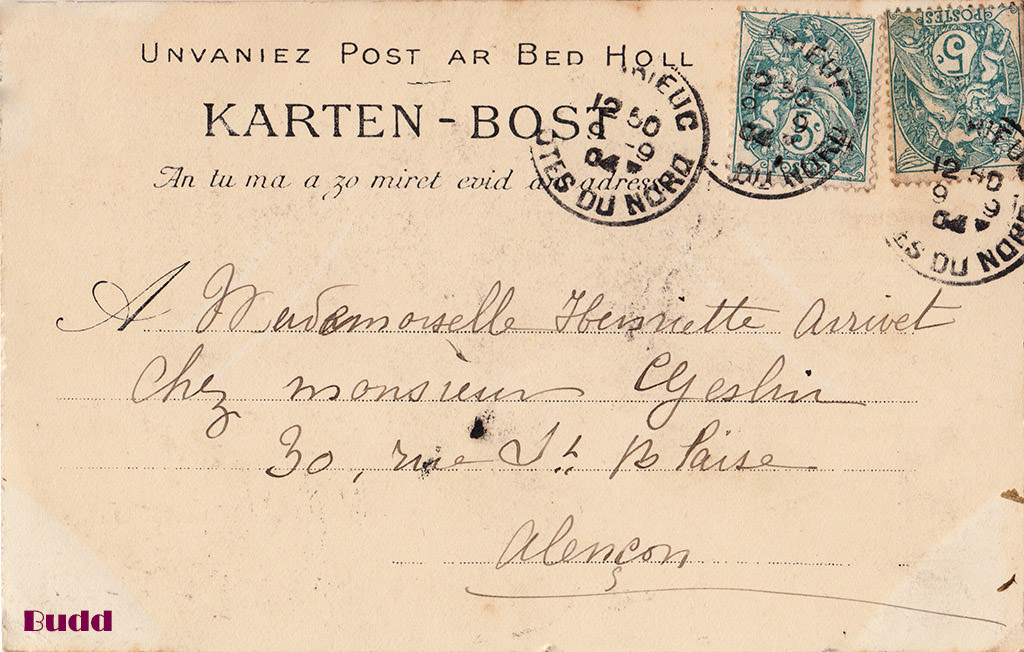 UNVANIEZ POST AR BED HOLL
KARTEN-BOST
An tu ma a zo miret evid an adress
RIEUC
12 50
9 -9
04
OTES DU NORD
RIEUC
12 50
9 9
04
DU NORD
5c
POSTES
5c
RIEUC
12 50
9 9
04
TES DU NORD
A Mademoiselle Henriette Arrivet
Chez monsieur Geslin
30, rue St Blaise
Alençon
Budd